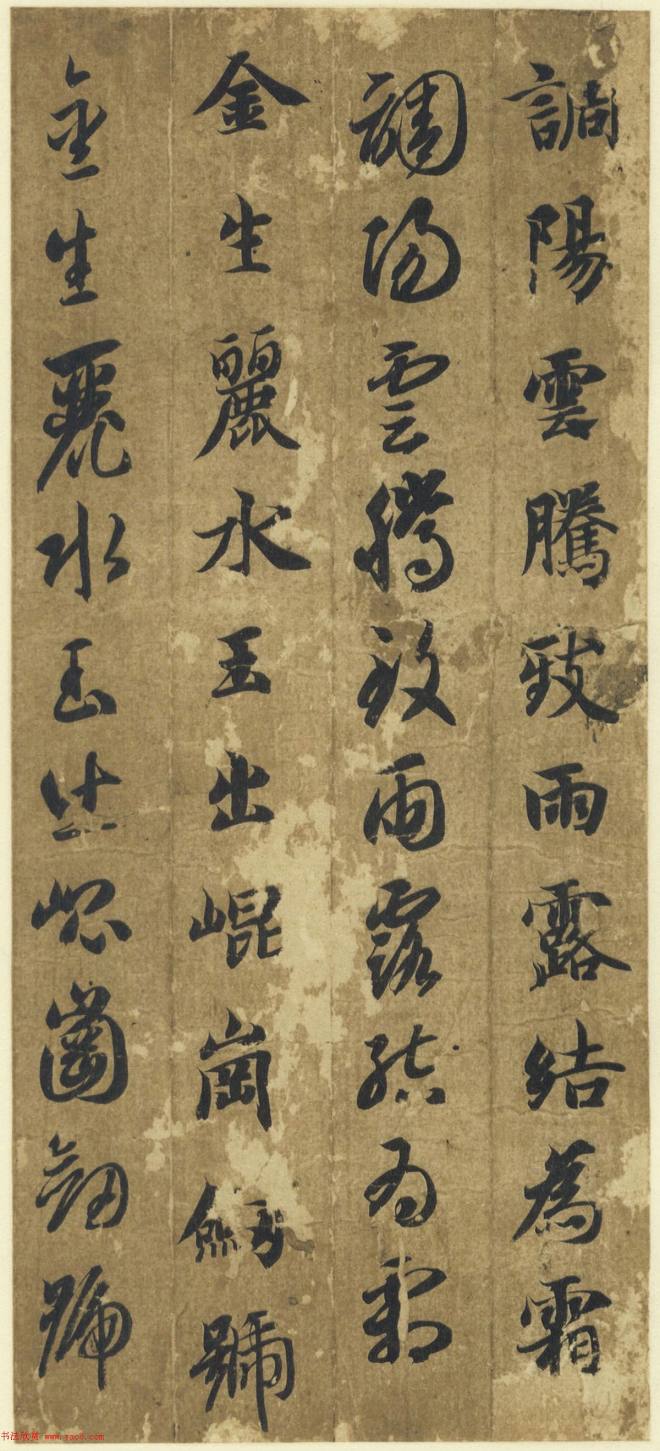 調陽雲騰致雨露結為霜
調陽雲騰致雨露結為霜
金生麗水玉出崐崗劔號
金生麗水玉出崐崗劔號
书法欣赏 www.yac8.com